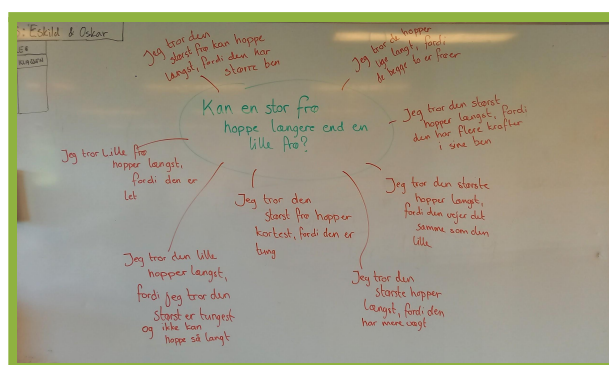 : Eskild & Oskar
ER
KLASSEN
Jeg tror den
størst frø kan hoppe
længst, fordi den har
større ben
Jeg
tror de hopper
lige langt, fordi
de begge to er frøer
Kan en stor frø
hoppe længere end en
lille frø?
Jeg tror den størst
hopper længst, fordi
den har flere kræfter
i sine ben
Jeg tror Lille frø
hopper længst,
fordi den er
let
Jeg tror den
størst frø hopper
kortest, fordi den er
tung
Jeg tror den største
hopper længst,
fordi den vejer det
samme som den
lille
Jeg tror den lille
hopper længst,
fordi jeg tror den
størst er tungest
og ikke kan
hoppe så langt
Jeg tror den
største hopper
længst, fordi den
har mere vægt